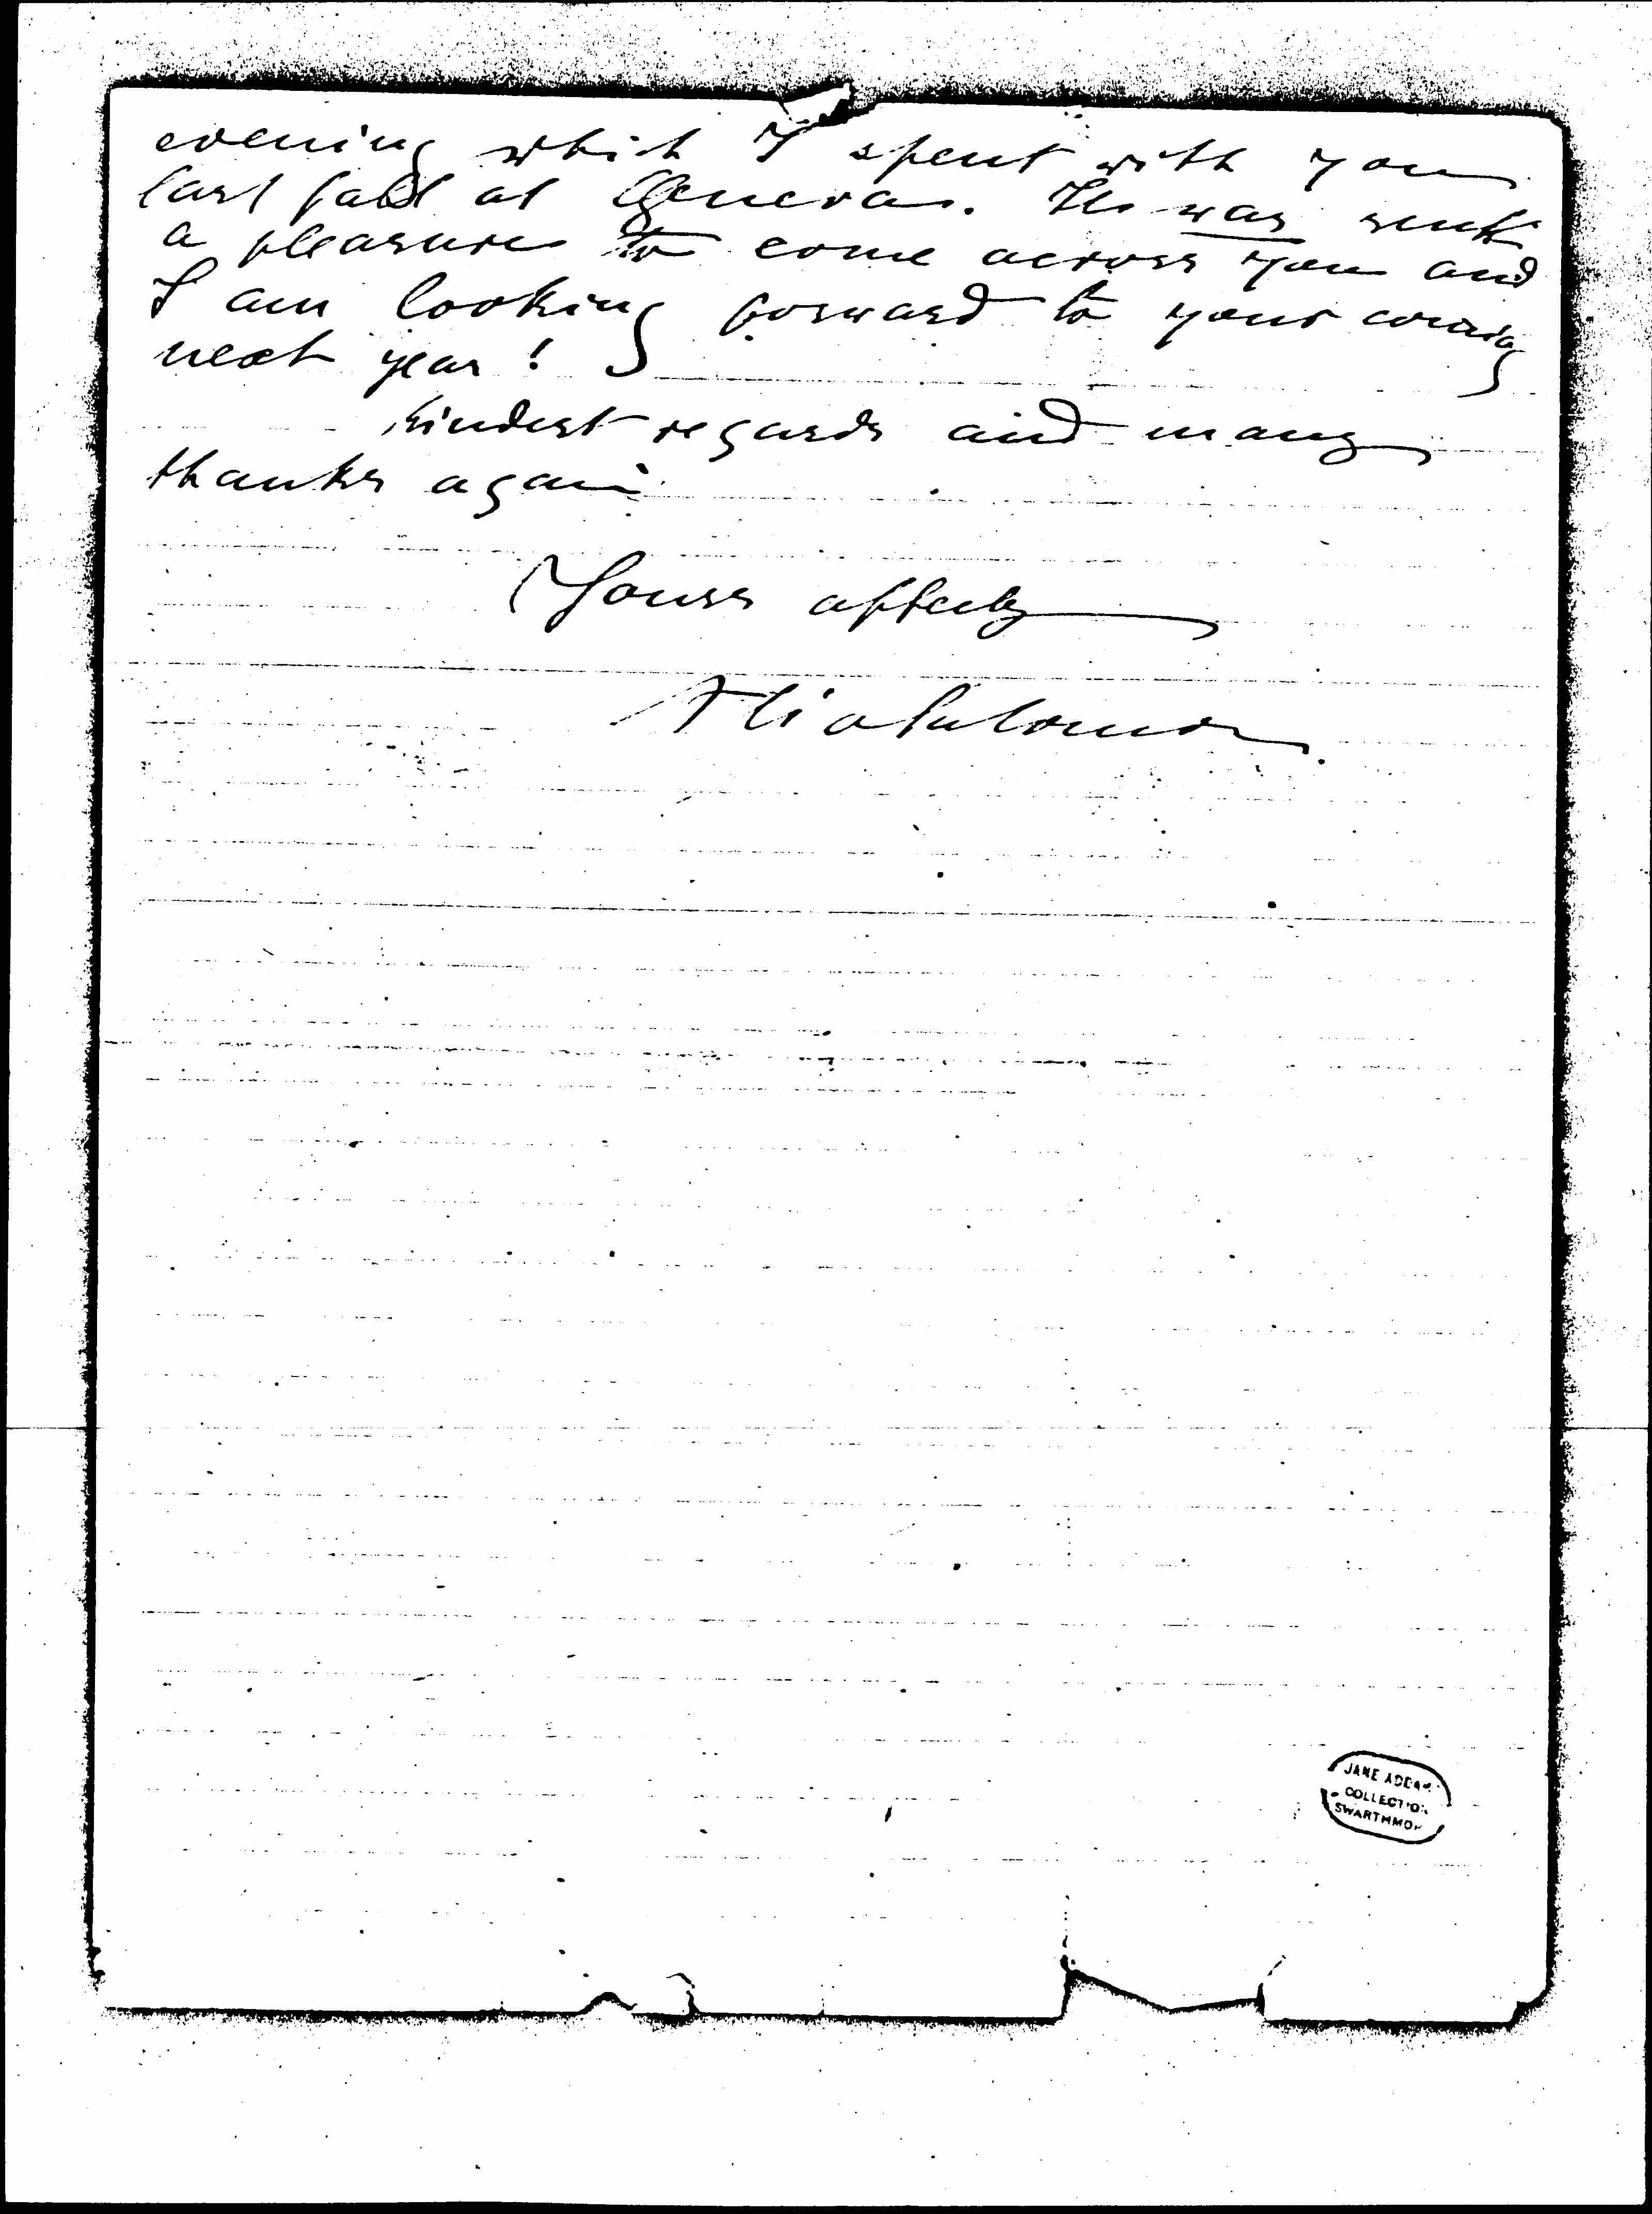 evening which I spent with you
last fall at Geneva. It was such
a pleasure to come across you and
I am looking forward to your coming
next year!
Kindest regards and many
thanks again
Yours affectly
Alice Salomon.
JANE ADDAMS
COLLECTION
SWARTHMORE